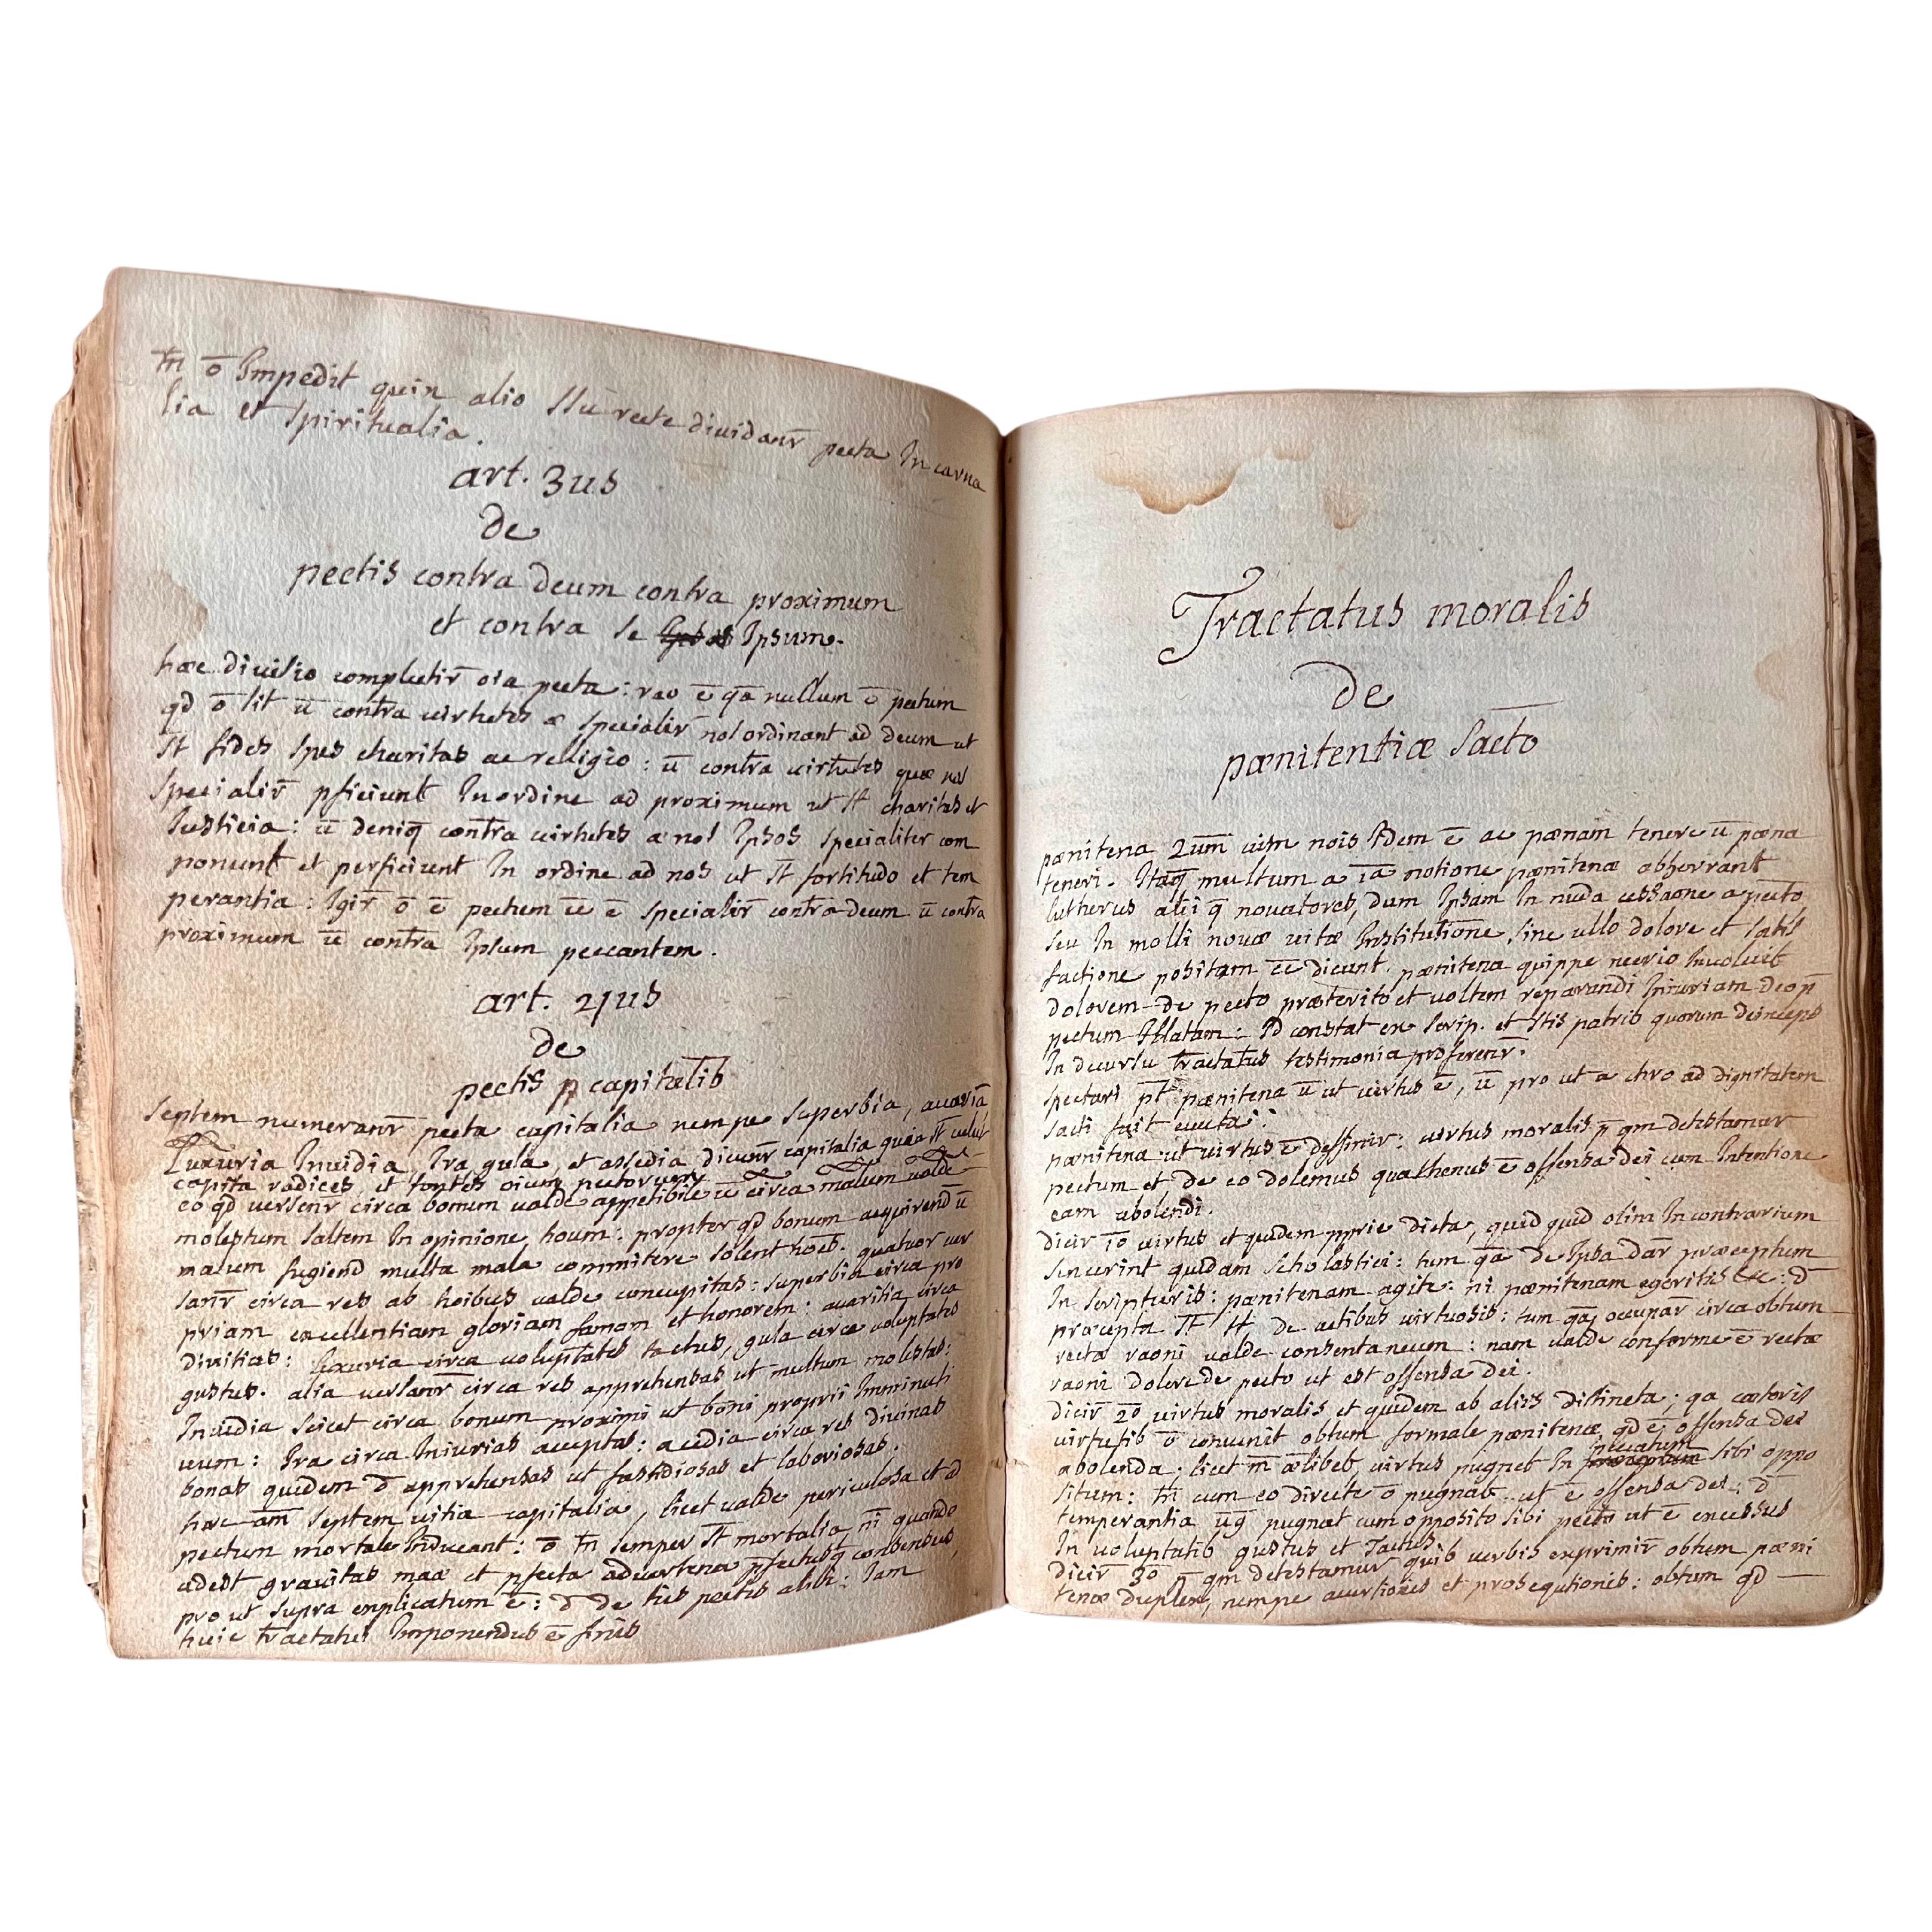 tm̄ ō Impedit quin alio sū recte dividanr̄ pecta In carna
lia et spiritualia.
art. 3us
de
pectis contra deum contra proximum
et contra se Ipsum.
hæc divisio complectir̄ oīa pecta: rāo ē qā nullum ē pectum
qd ō sit ū contra virtutes æ specialir̄ nos ordinant ad deum ut
st̄ fides spes charitas ac religio: ū contra virtutes quæ nos
specialir̄ pficiunt In ordine ad proximum ut st̄ charitas et
Iusticia: ū deniq̄ contra virtutes æ nos Ipsos specialiter com
ponunt et perficiunt In ordine ad nos ut st̄ fortitudo et tem
perantia: Igir̄ ō ē pectum ū ē specialir̄ contra deum ū contra
proximum ū contra Ipsum peccantem.
art. 4us
de
pectis capitalib
septem numeranr̄ pecta capitalia nempe superbia, avaria
Luxuria Invidia, Ira, gula, et assedia dicunr̄ capitalia quia st̄ velut
capita radices, et fontes oium pectorum
eo qd versenr̄ circa bonum valde appetibile ū circa malum valde
molestum saltem In opinione houm: propter qd bonum acquirend ū
malum fugiend multa mala committere solent hoēs. quatuor ver
sanr̄ circa res ab hoibus valde concupitas: superbia circa pro
priam excellentiam gloriam famam et honorem: avaritia circa
divitias: luxuria circa voluptates tactus, gula circa voluptates
gustus. alia versanr̄ circa res apprehensas ut multum molestas:
Invidia scicet circa bonum proximi ut boni proprii Imminuti
vum: Ira circa Iniurias acceptas: acedia circa res divinas
bonas quidem d̄ apprehensas ut fastidiosas et laboriosas.
hæc am̄ septem vitia capitalia, licet valde periculosa et ad
pectum mortale Inducant: ō tm̄ semper st̄ mortalia, nī quando
adest gravitas maæ et pfecta advertena pfectusq̄ consensus,
pro ut supra explicatum ē: d̄ de his pectis alibi: Iam
huic tractatui Imponendus ē finis
Tractatus moralis
de
pænitentiæ sacto
pænitena 2um vim nois Idem ē ac pænam tenere ū pæna
teneri. Itaq̄ multum a īa notione pænitenæ abherrant
lutherus aliiq̄ novatores, dum Ipsam In nuda cessaone a pecto
seu In molli novæ vitæ Institutione, sine ullo dolore et satis
factione positam ēē dicunt. pænitena quippe necrio Involvit
dolorem de pecto præterito et voltem reparandi Iniuriam deo p̄
pectum Illatam: Id constat ex scrip. et stis patrib quorum deinceps
In decursu tractatus testimonia proferenr̄.
spectari pt̄ pænitena ū ut virtus ē, ū pro ut a chro ad dignitatem
sacti fuit evecta:
pænitena ut virtus ē deffinir̄: virtus moralis p̄ qm detestamur
pectum et de eo dolemus quathenus ē offensa dei cum Intentione
eam abolendi.
dicir̄ 1o virtus et quidem pprie dicta, quidquid olim In contrarium
sencerint quidam scholastici: tum qā de Ipsa dar̄ præceptum
In scripturis: pænitenam agite: ni pænitenam egeritis &c: d̄
præcepta st̄ st̄ de actibus virtuosis: tum qā occupar̄ circa obtum
rectæ raoni valde consentaneum: nam valde conforme ē rectæ
raoni dolere de pecto ut est offensa dei.
dicir̄ 2o virtus moralis et quidem ab aliis distincta; qa cæteris
virtutib ō convenit obtum formale pænitenæ, qd ē offensa dei
abolenda; licet m̄ ælibet virtus pugnet In peccatum sibi oppo
situm: tm̄ cum eo directe ō pugnat ut ē offensa dei: d̄
temperantia ūg pugnat cum opposito sibi pecto ut ē excessus
In voluptatib gustus et tactus.
dicir̄ 3o p̄ qm detestamur quib verbis exprimir̄ obtum pæni
tenæ duplex, nempe aversiones et prosequtiones: obtum qd